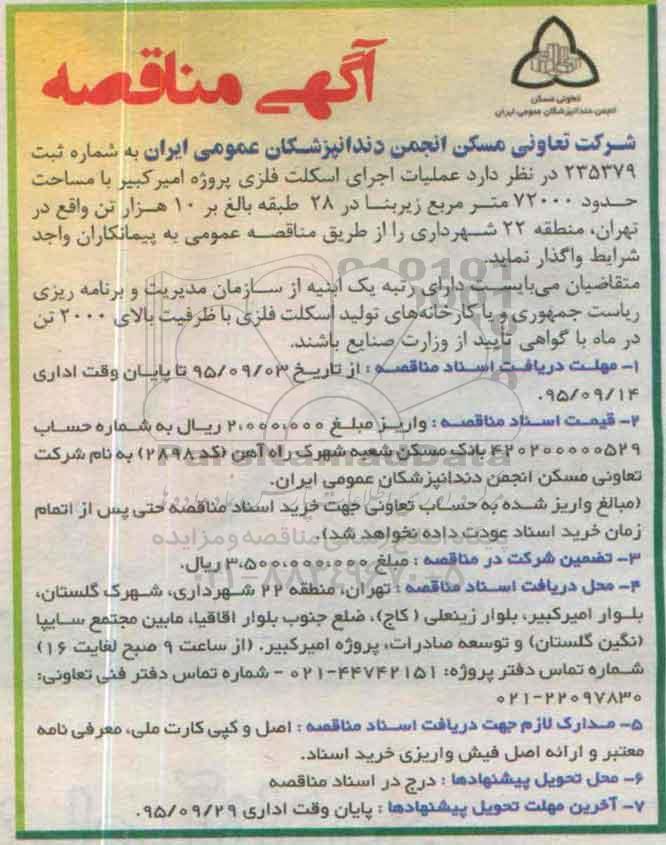 آگهی مناقصه
تعاونی مسکن
انجمن دندانپزشکان عمومی ایران
شرکت تعاونی مسکن انجمن دندانپزشکان عمومی ایران به شماره ثبت
۲۳۵۳۷۹ در نظر دارد عملیات اجرای اسکلت فلزی پروژه امیرکبیر با مساحت
حدود ۷۲۰۰۰ متر مربع زیربنا در ۲۸ طبقه بالغ بر ۱۰ هزار تن واقع در
تهران، منطقه ۲۲ شهرداری را از طریق مناقصه عمومی به پیمانکاران واجد
شرایط واگذار نماید.
متقاضیان می‌بایست دارای رتبه یک ابنیه از سازمان مدیریت و برنامه ریزی
ریاست جمهوری و یا کارخانه‌های تولید اسکلت فلزی با ظرفیت بالای ۲۰۰۰ تن
در ماه با گواهی تأیید از وزارت صنایع باشند.
۱- مهلت دریافت اسناد مناقصه : از تاریخ ۹۵/۰۹/۰۳ تا پایان وقت اداری
۹۵/۰۹/۱۴.
۲- قیمت اسناد مناقصه : واریز مبلغ ۲،۰۰۰،۰۰۰ ریال به شماره حساب
۴۲۰۲۰۰۰۰۰۵۲۹ بانک مسکن شعبه شهرک راه آهن (کد ۲۸۹۸) به نام شرکت
تعاونی مسکن انجمن دندانپزشکان عمومی ایران.
(مبالغ واریز شده به حساب تعاونی جهت خرید اسناد مناقصه حتی پس از اتمام
زمان خرید اسناد عودت داده نخواهد شد).
۳- تضمین شرکت در مناقصه : مبلغ ۳،۵۰۰،۰۰۰،۰۰۰ ریال.
۴- محل دریافت اسناد مناقصه : تهران، منطقه ۲۲ شهرداری، شهرک گلستان،
بلوار امیرکبیر، بلوار زینعلی (کاج)، ضلع جنوب بلوار اقاقیا، مابین مجتمع سایپا
(نگین گلستان) و توسعه صادرات، پروژه امیرکبیر. (از ساعت ۹ صبح لغایت ۱۶)
شماره تماس دفتر پروژه: ۴۴۷۴۲۱۵۱-۰۲۱ - شماره تماس دفتر فنی تعاونی:
۰۲۱-۲۲۰۹۷۸۳۰
۵- مدارک لازم جهت دریافت اسناد مناقصه : اصل و کپی کارت ملی، معرفی نامه
معتبر و ارائه اصل فیش واریزی خرید اسناد.
۶- محل تحویل پیشنهادها : درج در اسناد مناقصه
۷- آخرین مهلت تحویل پیشنهادها : پایان وقت اداری ۹۵/۰۹/۲۹.
ParsNamadData